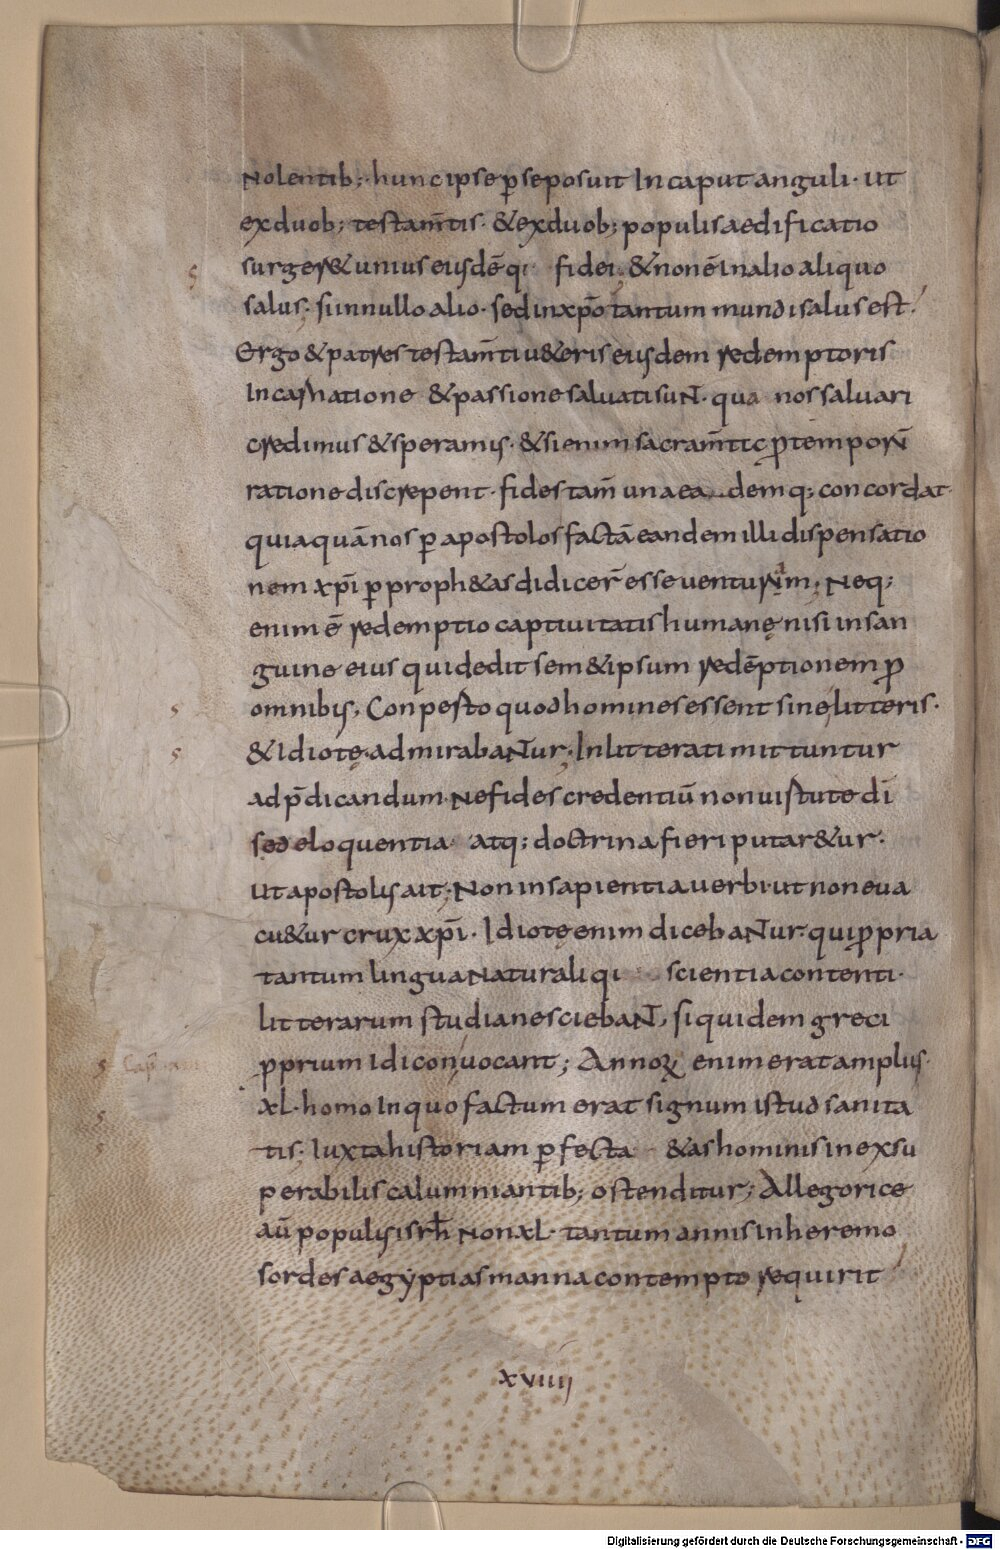 Nolentib; hunc ipse p̱ se posuit In caput anguli· ut
ex duob; testam̄tis· & ex duob; populis aedificatio
surger& unius eiusdēq; fidei; & non ē In alio aliquo
salus; si In nullo alio· sed in xp̄o tantum mundi salus est;
Ergo & patres testam̄ti u&eris eiusdem redemptoris
Incarnatione & passione saluati suN̄· qua nos saluari
credimus & speramus· & si enim sacram̄tic p̱temporN̄
ratione discrepent· fides tam̄ una ea demq; concordat
quia quā nos p̱ apostolos factā eandem illi dispensatio
nem xp̄i p̱ proph&as didicer̄ esse uenturam; Neq;
enim ē redemptio captiuitatis humanę nisi in san
guine eius qui dedit sem&ipsum redēptionem p̱
omnibus, Conpesto quod homines essent sine litteris·
& Idiotę· admirabaNur· Inlitterati mittuntur
ad p̄dicandum· Ne fides credentiū non uirtute dī
sed eloquentia atq; doctrina fieri putar&ur·
Ut apostolus ait; Non in sapientia uerbi· ut non eua
cu&ur crux xp̄i· Idiotę enim dicebaNur· qui p̱pria
tantum lingua Naturaliq; scientia contenti·
litterarum studia nesciebaN̄, si quidem greci
p̱prium Idicon uocant; Annoꝝ enim erat amplius·
xl· homo In quo factum erat signum istud sanita
tis· Iuxta historiam p̱fecta &as hominis inexsu
perabilis calumniantib; ostenditur; Allegorice
aū populus isrl̄ Non xl· tantum annis in heremo
sordes aegyptias manna contempto requirit
xviiii